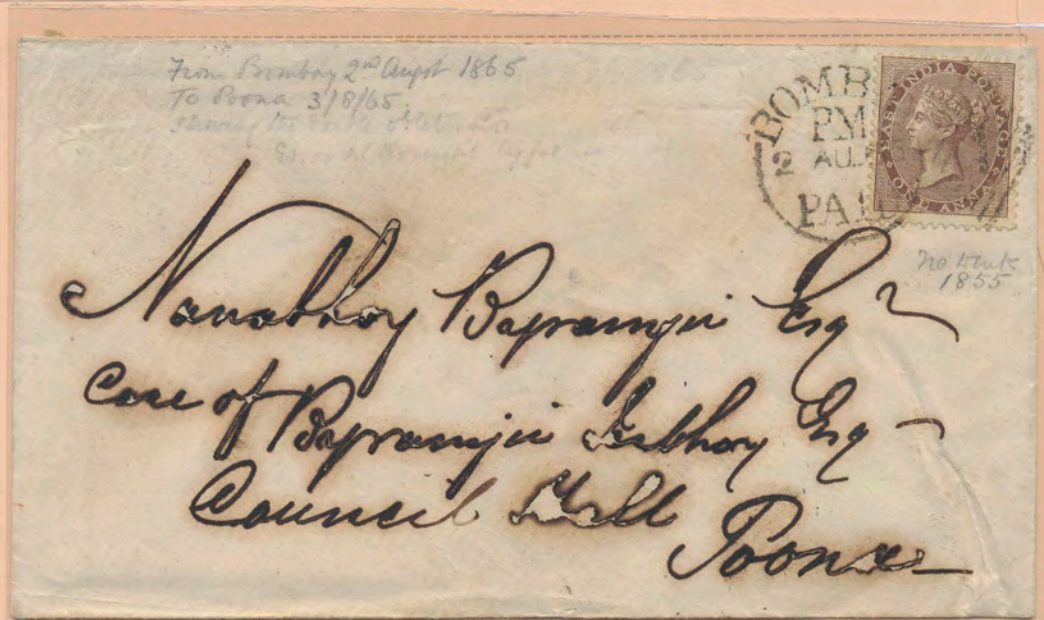 From Bombay 2nd Augst 1865
To Poona 3/8/65.
showing the
BOMB
PM
2 AU
PAI
EAST INDIA POSTAGE
ONE ANNA
no wmk
1855
Nanabhoy Byramjee Esqr
Care of Byramjee Jeejeebhoy Esq
Council Hall
Poona